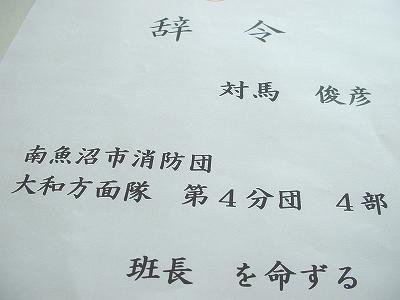 辞　令
対馬　俊彦
南魚沼市消防団
大和方面隊　第４分団　４部
班長　を命ずる